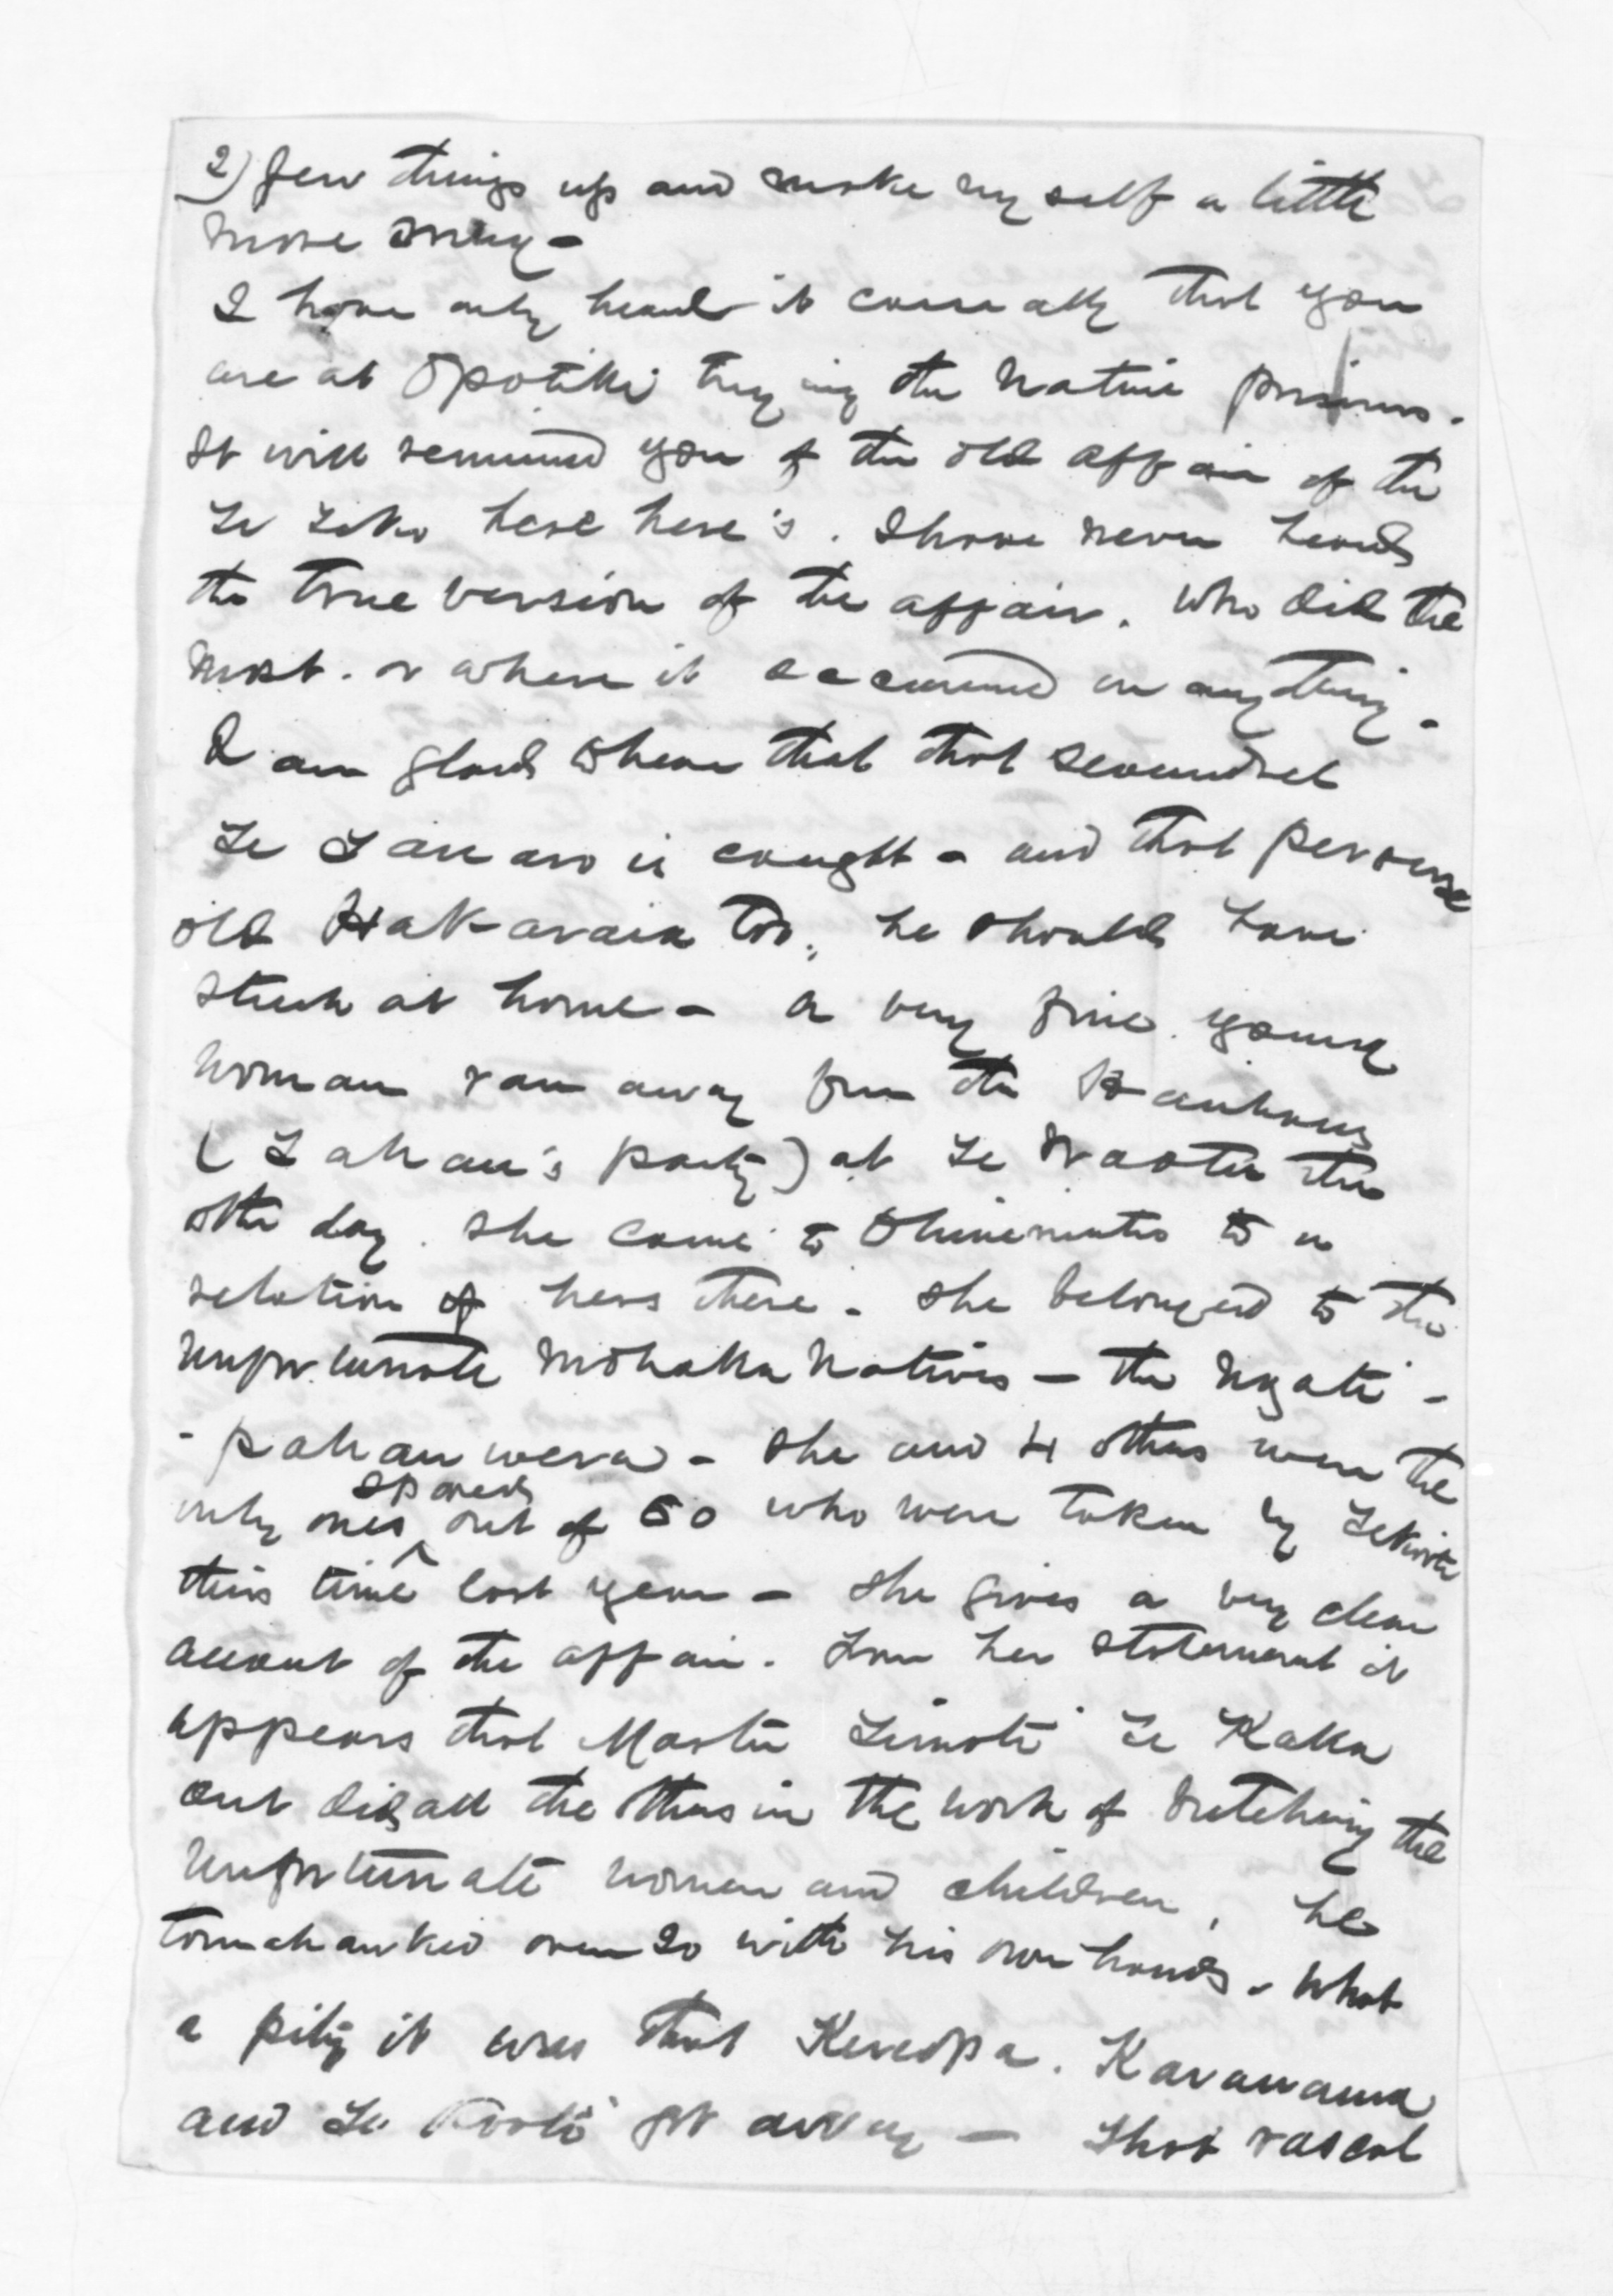 2) few things up and make myself a little
more snug -
I have only heard it casually that you
are at Opotiki trying the Native prisoners.
It will remind you of the old affair of the
Te Teko here here's. I have never heard
the true version of the affair. Who did the
most. or where it occurred or anything.
I am glad to hear that that scoundrel
Te Tanaro is caught - and that perverse
old Hakaraia too, he should have
stuck at home - a very fine young
woman ran away from the Hauhaus
(Tahau's party) at Te Waotu the
other day. She came to Ohinemutu to a
relation of hers there. She belonged to the
unfortunate Mohaka Natives - the Ngati -
- pahauwera - She and 4 others were the
only ones spared out of 60 who were taken by Te Kooti
this time last year - She gives a very clear
account of the affair. From her statement it
appears that Master Timoti Te Kaka
out did all the others in the work of butchering the
unfortunate women and children, he
tomahawked over 20 with his own hands. What
a pity it was that Kereopa. Kararauna
and Te Kooti got away - That rascal